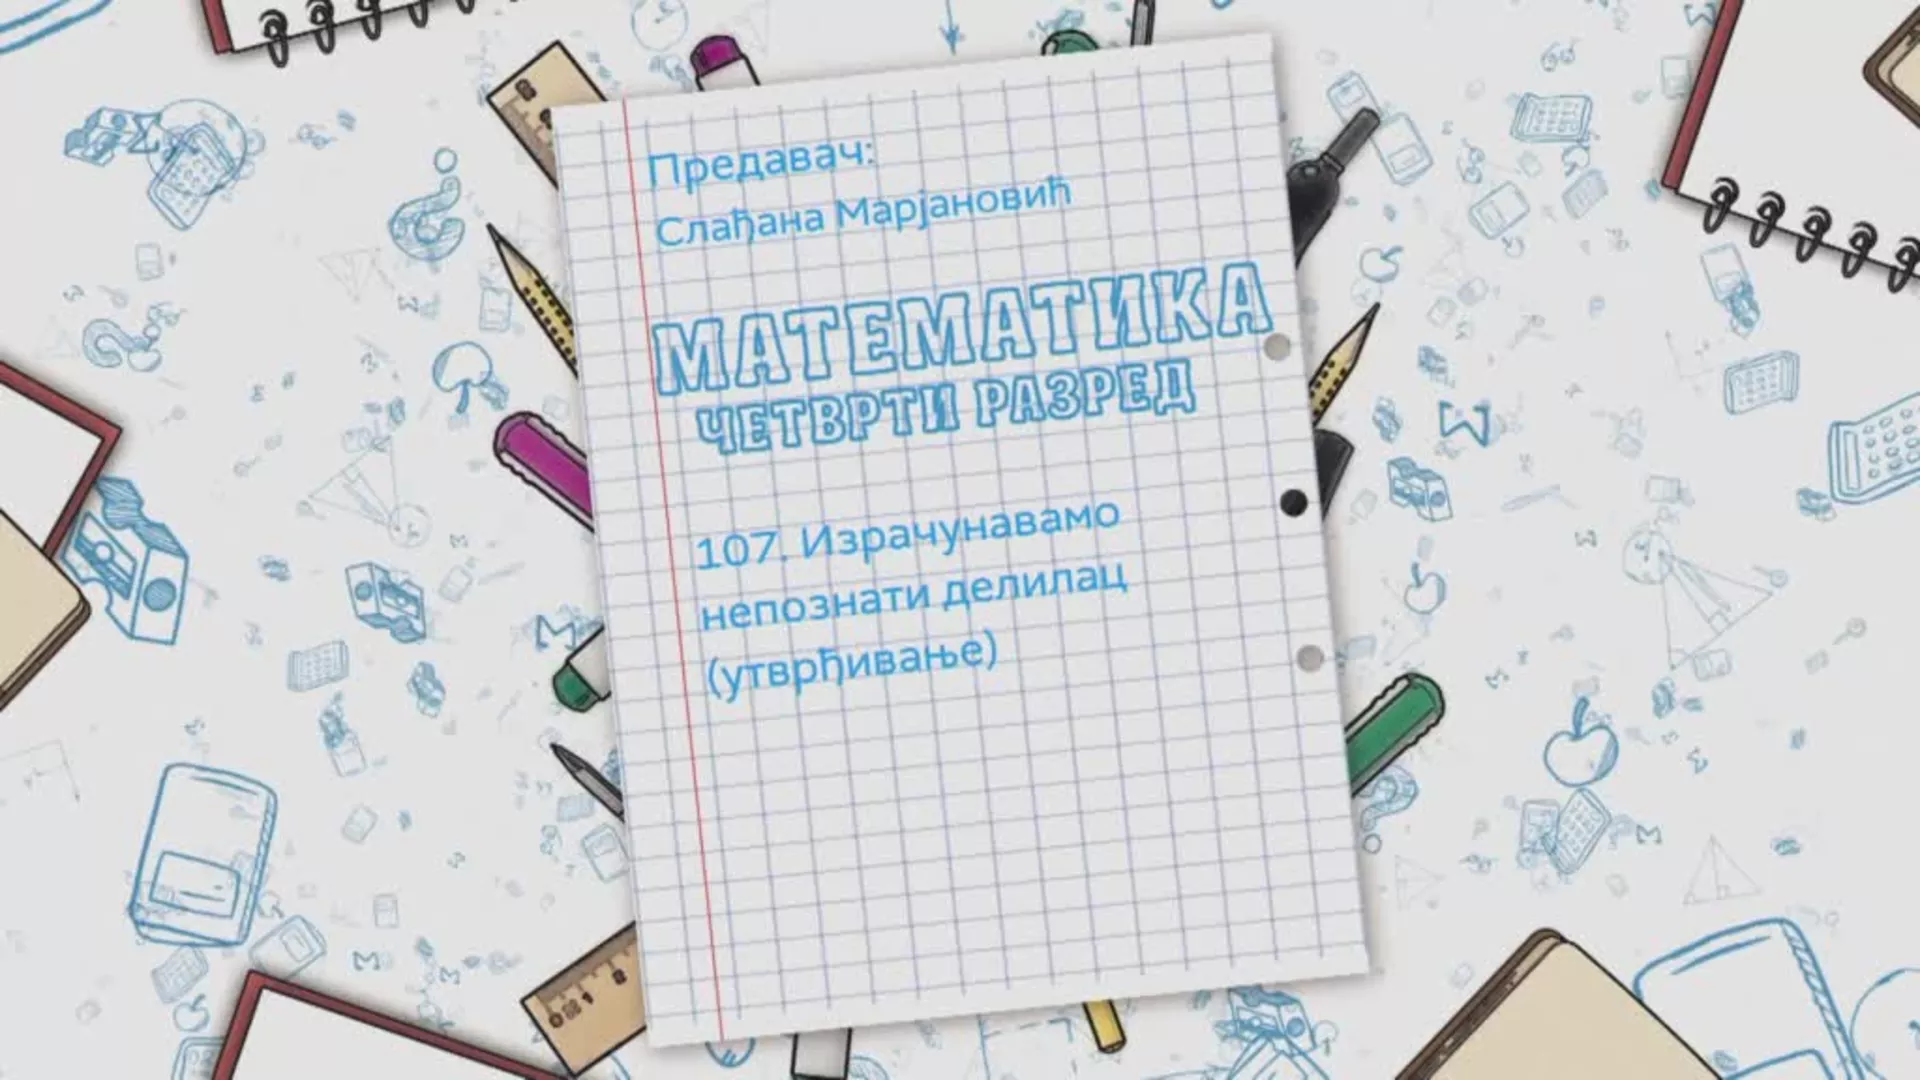 Предавач:
Слађана Марјановић
МАТЕМАТИКА
ЧЕТВРТИ РАЗРЕД
107. Израчунавамо
непознати делилац
(утврђивање)